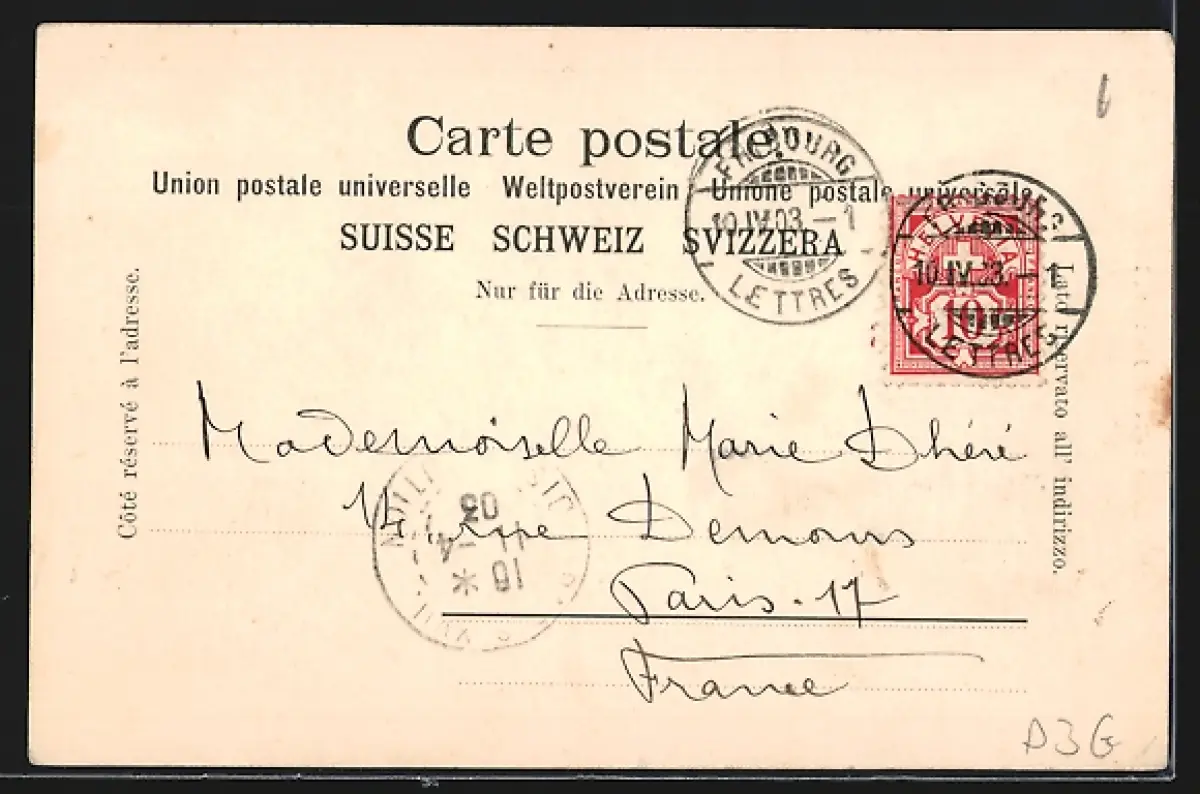 Carte postale.
Union postale universelle Weltpostverein Unione postale universale
SUISSE SCHWEIZ SVIZZERA
Nur für die Adresse.
Côté réservé à l'adresse.
Lato riservato all' indirizzo.
FRIBOURG
10.IV.03.—1
LETTRES
FRIBOURG
10.IV.03.—1
LETTRES
HELVETIA
10
Mademoiselle Marie Dhéré
14 rue Demours
Paris. 17
France
03
11 -4
18 *
D3G